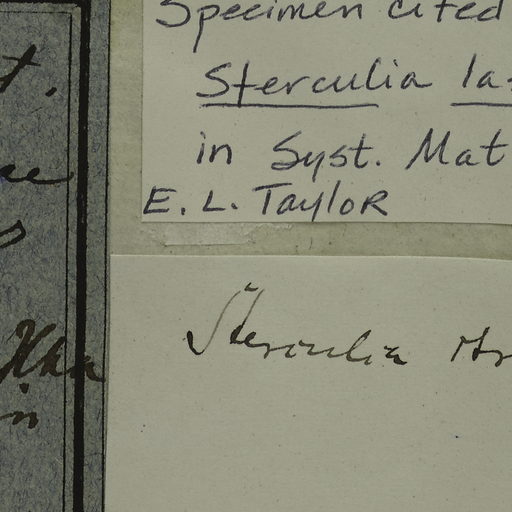 Specimen cited
Sterculia la
in Syst. Mat
E. L. Taylor
Sterculia
in